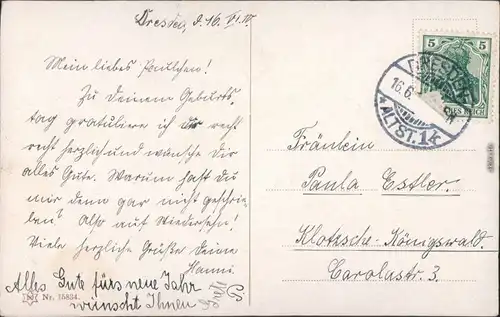 Dresden, d. 16. VI. 10.
Mein liebes Paulchen!
Zu Deinem Geburts-
tag gratuliere ich Dir recht
recht herzlich und wünsche Dir
alles Gute. Warum hast Du
mir denn gar nicht geschrie-
ben? Also auf Wiedersehn!
Viele herzliche Grüße Deine
Hanni.
Alles Gute fürs neue Jahr
wünscht Ihnen
Nr. 15834.
5 5
DEUTSCHES REICH
DRESDEN
16.6.
* ALTST. 14
Fräulein
Paula Estler.
Klotzsche-Königswald.
Carolastr. 3.